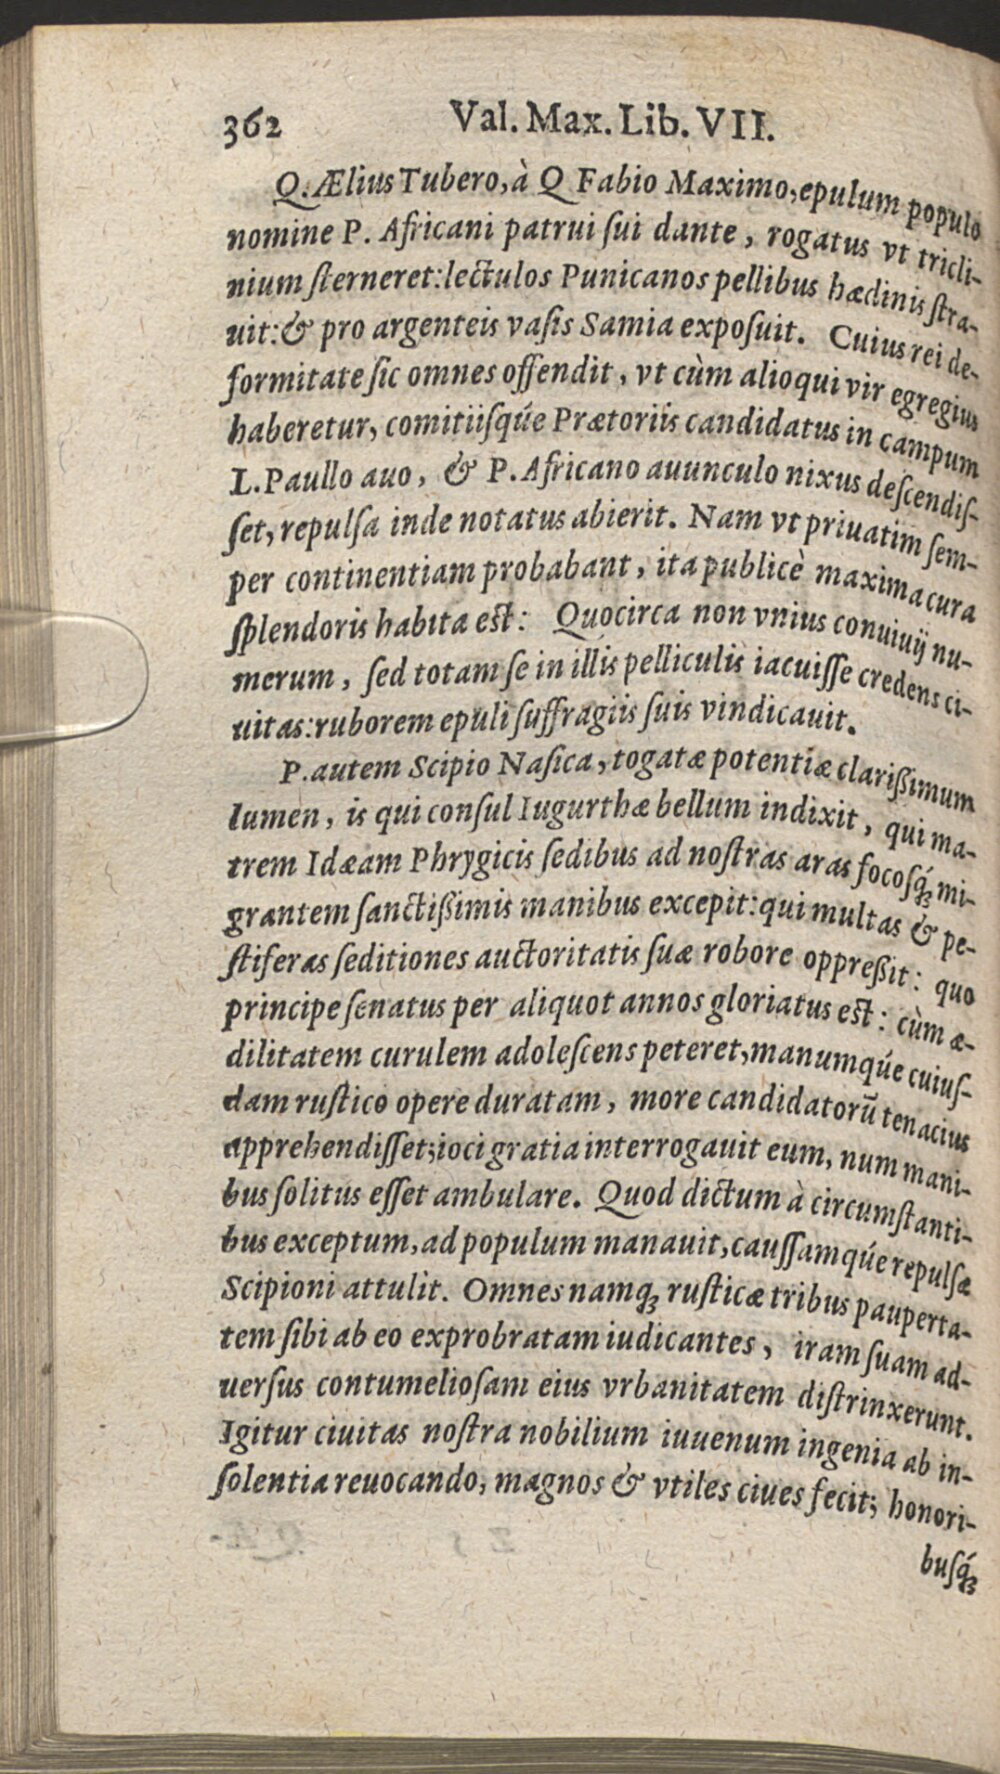 362 Val. Max. Lib. VII.
Q. Ælius Tubero, à Q Fabio Maximo, epulum populo
nomine P. Africani patrui ſui dante, rogatus vt tricli-
nium ſterneret: lectulos Punicanos pellibus hædinis ſtra-
uit: & pro argenteis vaſis Samia expoſuit. Cuius rei de-
formitate ſic omnes offendit, vt cùm alioqui vir egregius
haberetur, comitiiſqúe Prætoriis candidatus in campum
L. Paullo auo, & P. Africano auunculo nixus deſcendiſ-
ſet, repulſa inde notatus abierit. Nam vt priuatim ſem-
per continentiam probabant, ita publicè maxima cura
ſplendoris habita eſt: Quocirca non vnius conuiuij nu-
merum, ſed totam ſe in illis pelliculis iacuiſſe credens ci-
uitas: ruborem epuli ſuffragiis ſuis vindicauit.
P. autem Scipio Naſica, togatæ potentiæ clariſſimum
lumen, is qui conſul Iugurthæ bellum indixit, qui ma-
trem Idæam Phrygicis ſedibus ad noſtras aras focoſq́; mi-
grantem ſanctiſſimis manibus excepit: qui multas & pe-
ſtiferas ſeditiones auctoritatis ſuæ robore oppreſſit: quo
principe ſenatus per aliquot annos gloriatus eſt: cùm æ-
dilitatem curulem adoleſcens peteret, manumqúe cuiuſ-
dam ruſtico opere duratam, more candidatorũ tenacius
apprehendiſſet; ioci gratia interrogauit eum, num mani-
bus ſolitus eſſet ambulare. Quod dictum à circumſtanti-
bus exceptum, ad populum manauit, cauſſamqúe repulſæ
Scipioni attulit. Omnes namq́; ruſticæ tribus pauperta-
tem ſibi ab eo exprobratam iudicantes, iram ſuam ad-
uerſus contumelioſam eius vrbanitatem diſtrinxerunt.
Igitur ciuitas noſtra nobilium iuuenum ingenia ab in-
ſolentia reuocando, magnos & vtiles ciues fecit; honori-
buſq́;